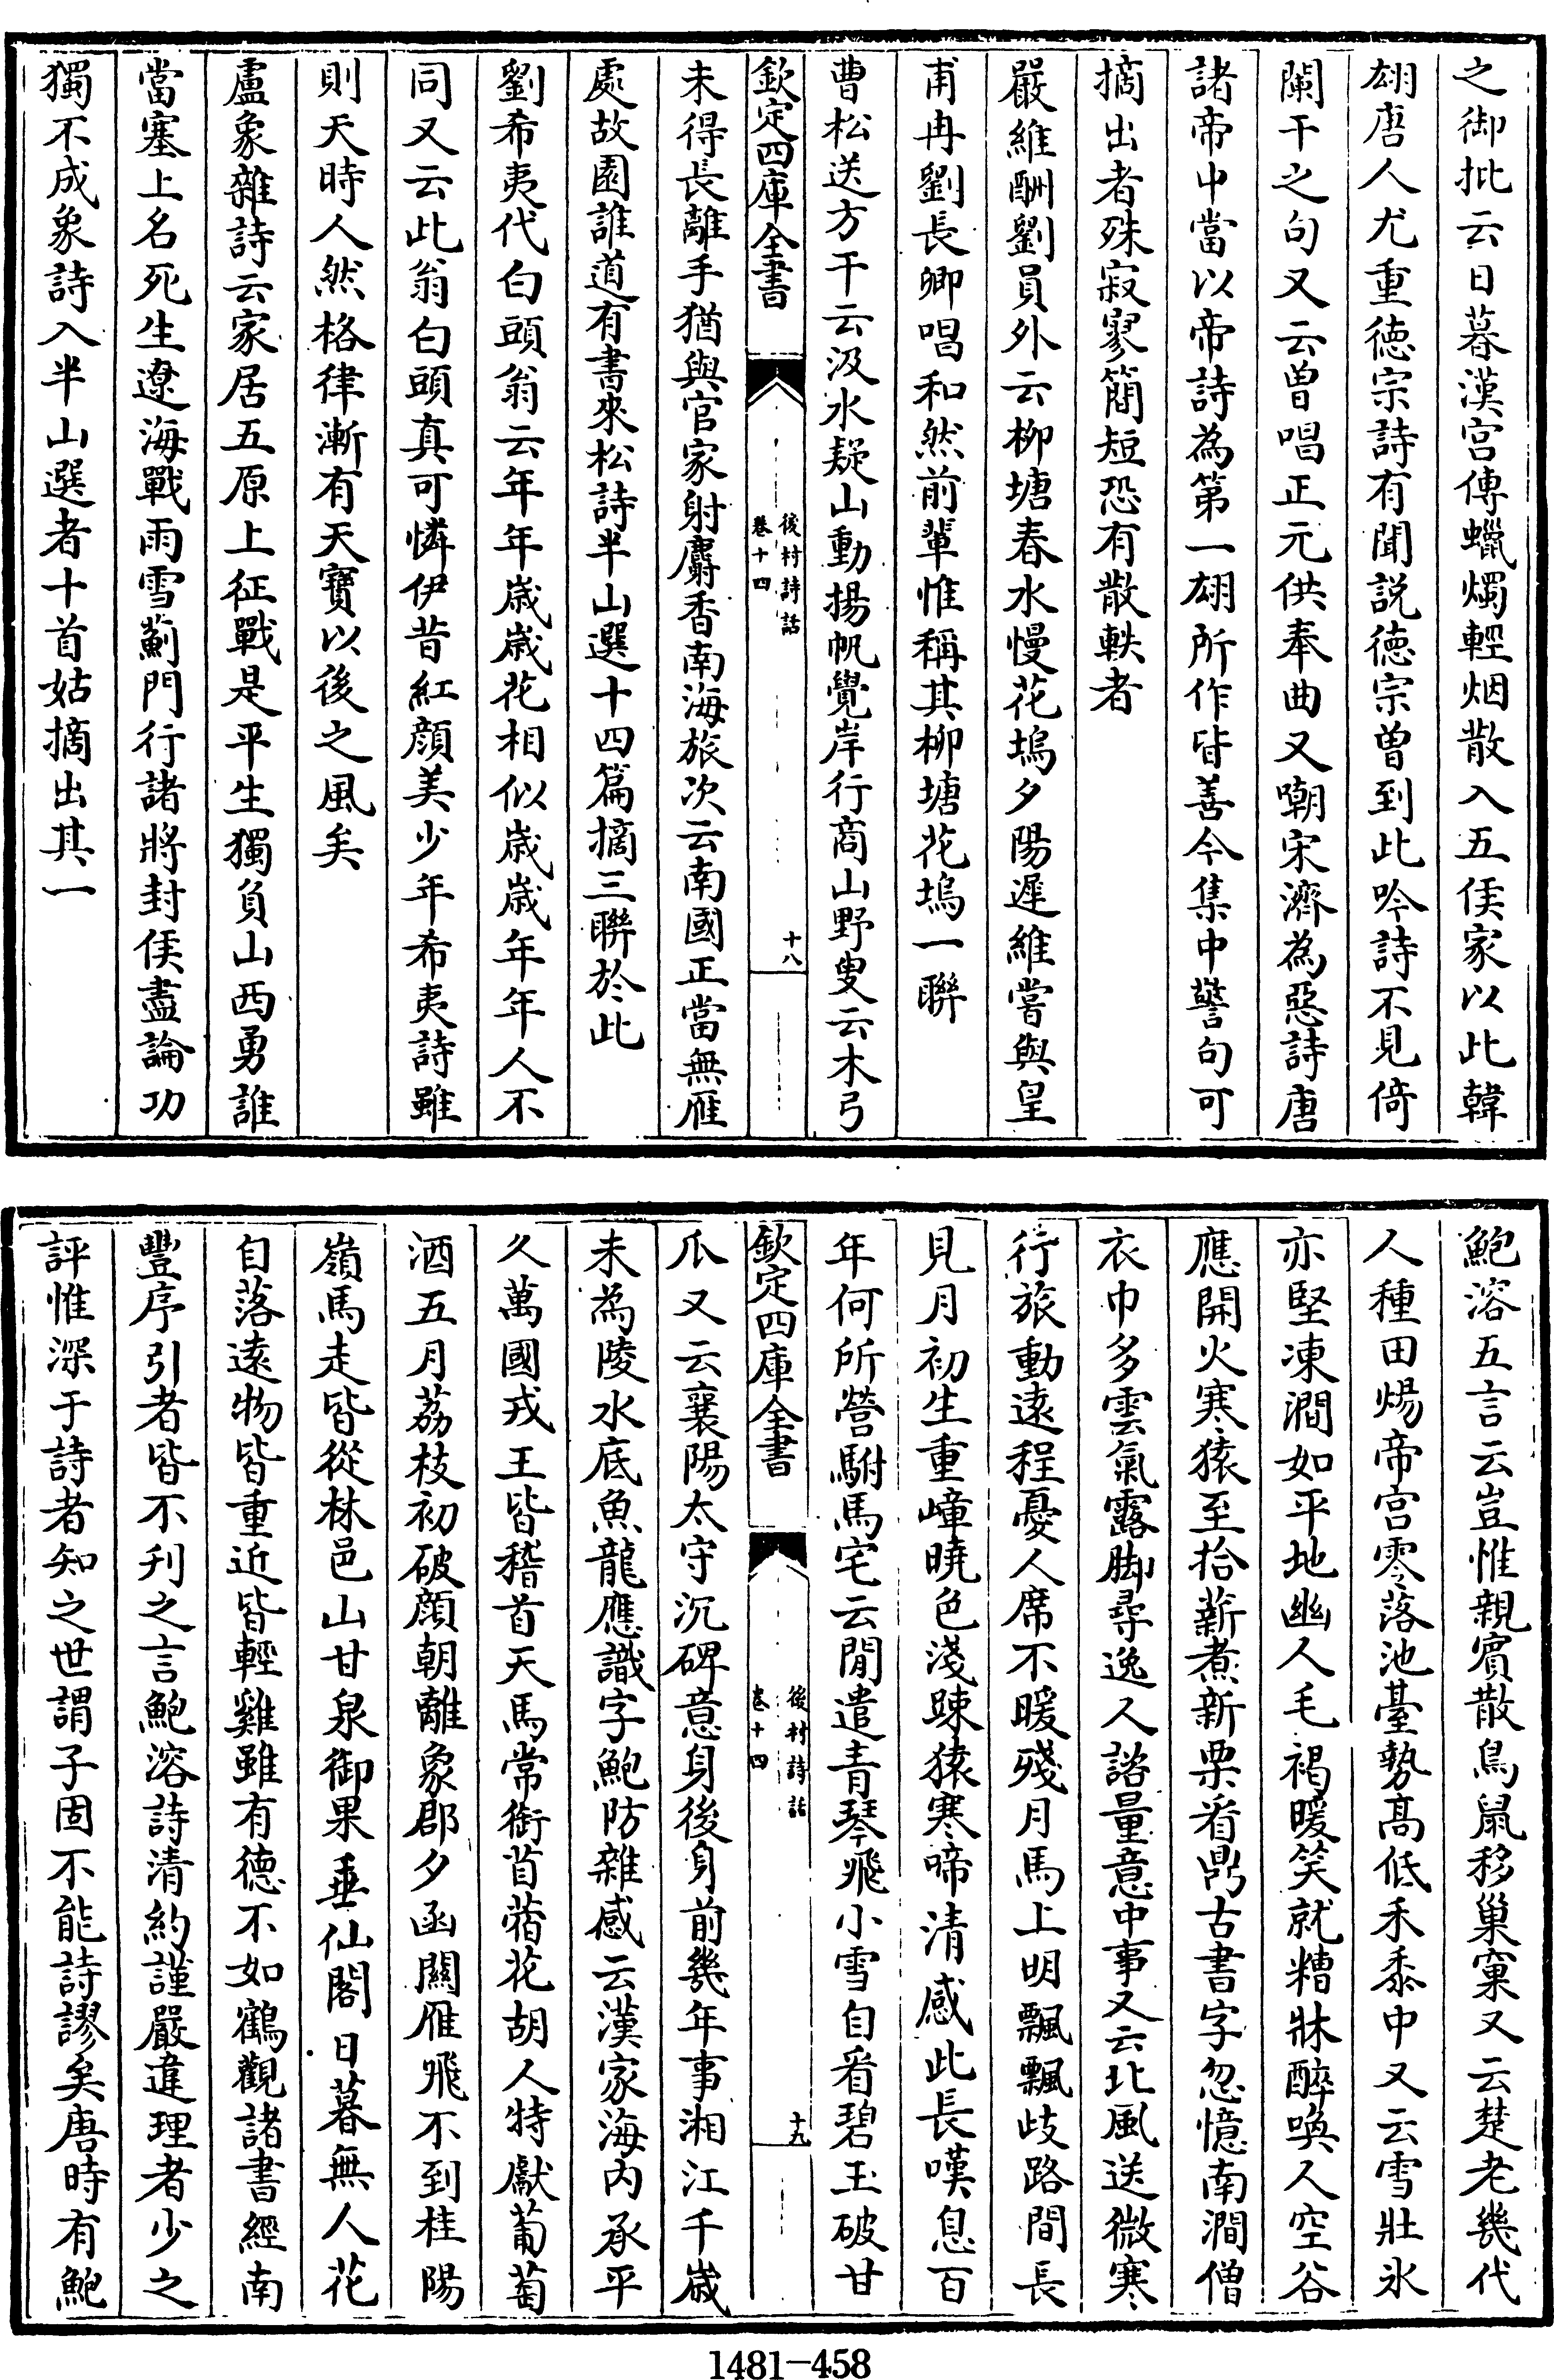 之御批云日暮漢宫傳蠟燭輕烟散入五侯家以此韓
翃唐人尤重徳宗詩有聞説徳宗曾到此吟詩不見倚
闌干之句又云曾唱正元供奉曲又嘲宋濟為惡詩唐
諸帝中當以帝詩為第一翃所作皆善今集中警句可
摘出者殊寂寥簡短恐有散軼者
嚴維酬劉員外云柳塘春水慢花塢夕陽遲維嘗與皇
甫冉劉長卿唱和然前輩惟稱其柳塘花塢一聯
曹松送方干云汲水疑山動揚帆覺岸行商山野叟云木弓
欽定四庫全書
後村詩話
卷十四
十八
未得長離手猶與官家射麝香南海旅次云南國正當無雁
處故園誰道有書來松詩半山選十四篇摘三聯於此
劉希夷代白頭翁云年年歳歳花相似歳歳年年人不
同又云此翁白頭真可憐伊昔紅顔美少年希夷詩雖
則天時人然格律漸有天寶以後之風矣
盧象雜詩云家居五原上征戰是平生獨負山西勇誰
當塞上名死生遼海戰雨雪薊門行諸將封侯盡論功
獨不成象詩入半山選者十首姑摘出其一
鮑溶五言云豈惟親賓散鳥鼠移巢窠又云楚老幾代
人種田煬帝宫零落池臺勢髙低禾黍中又云雪壯氷
亦堅凍澗如平地幽人毛褐暖笑就糟牀醉喚人空谷
應開火寒猿至拾薪煮新栗看鼎古書字忽憶南澗僧
衣巾多雲氣露脚尋逸人諮量意中事又云北風送微寒
行旅動逺程憂人席不暖殘月馬上明飄飄歧路間長
見月初生重嶂曉色淺踈猿寒啼清感此長嘆息百
年何所營駙馬宅云閒遣青琴飛小雪自看碧玉破甘
欽定四庫全書
後村詩話
卷十四
十九
瓜又云襄陽太守沉碑意身後身前幾年事湘江千歳
未為陵水底魚龍應識字鮑防雜感云漢家海内承平
久萬國戎王皆稽首天馬常銜苜蓿花胡人特獻葡萄
酒五月荔枝初破顔朝離象郡夕函關雁飛不到桂陽
嶺馬走皆從林邑山甘泉御果垂仙閣日暮無人花
自落逺物皆重近皆輕雞雖有徳不如鶴觀諸書經南
豐序引者皆不刋之言鮑溶詩清約謹嚴違理者少之
評惟深于詩者知之世謂子固不能詩謬矣唐時有鮑
1481-458